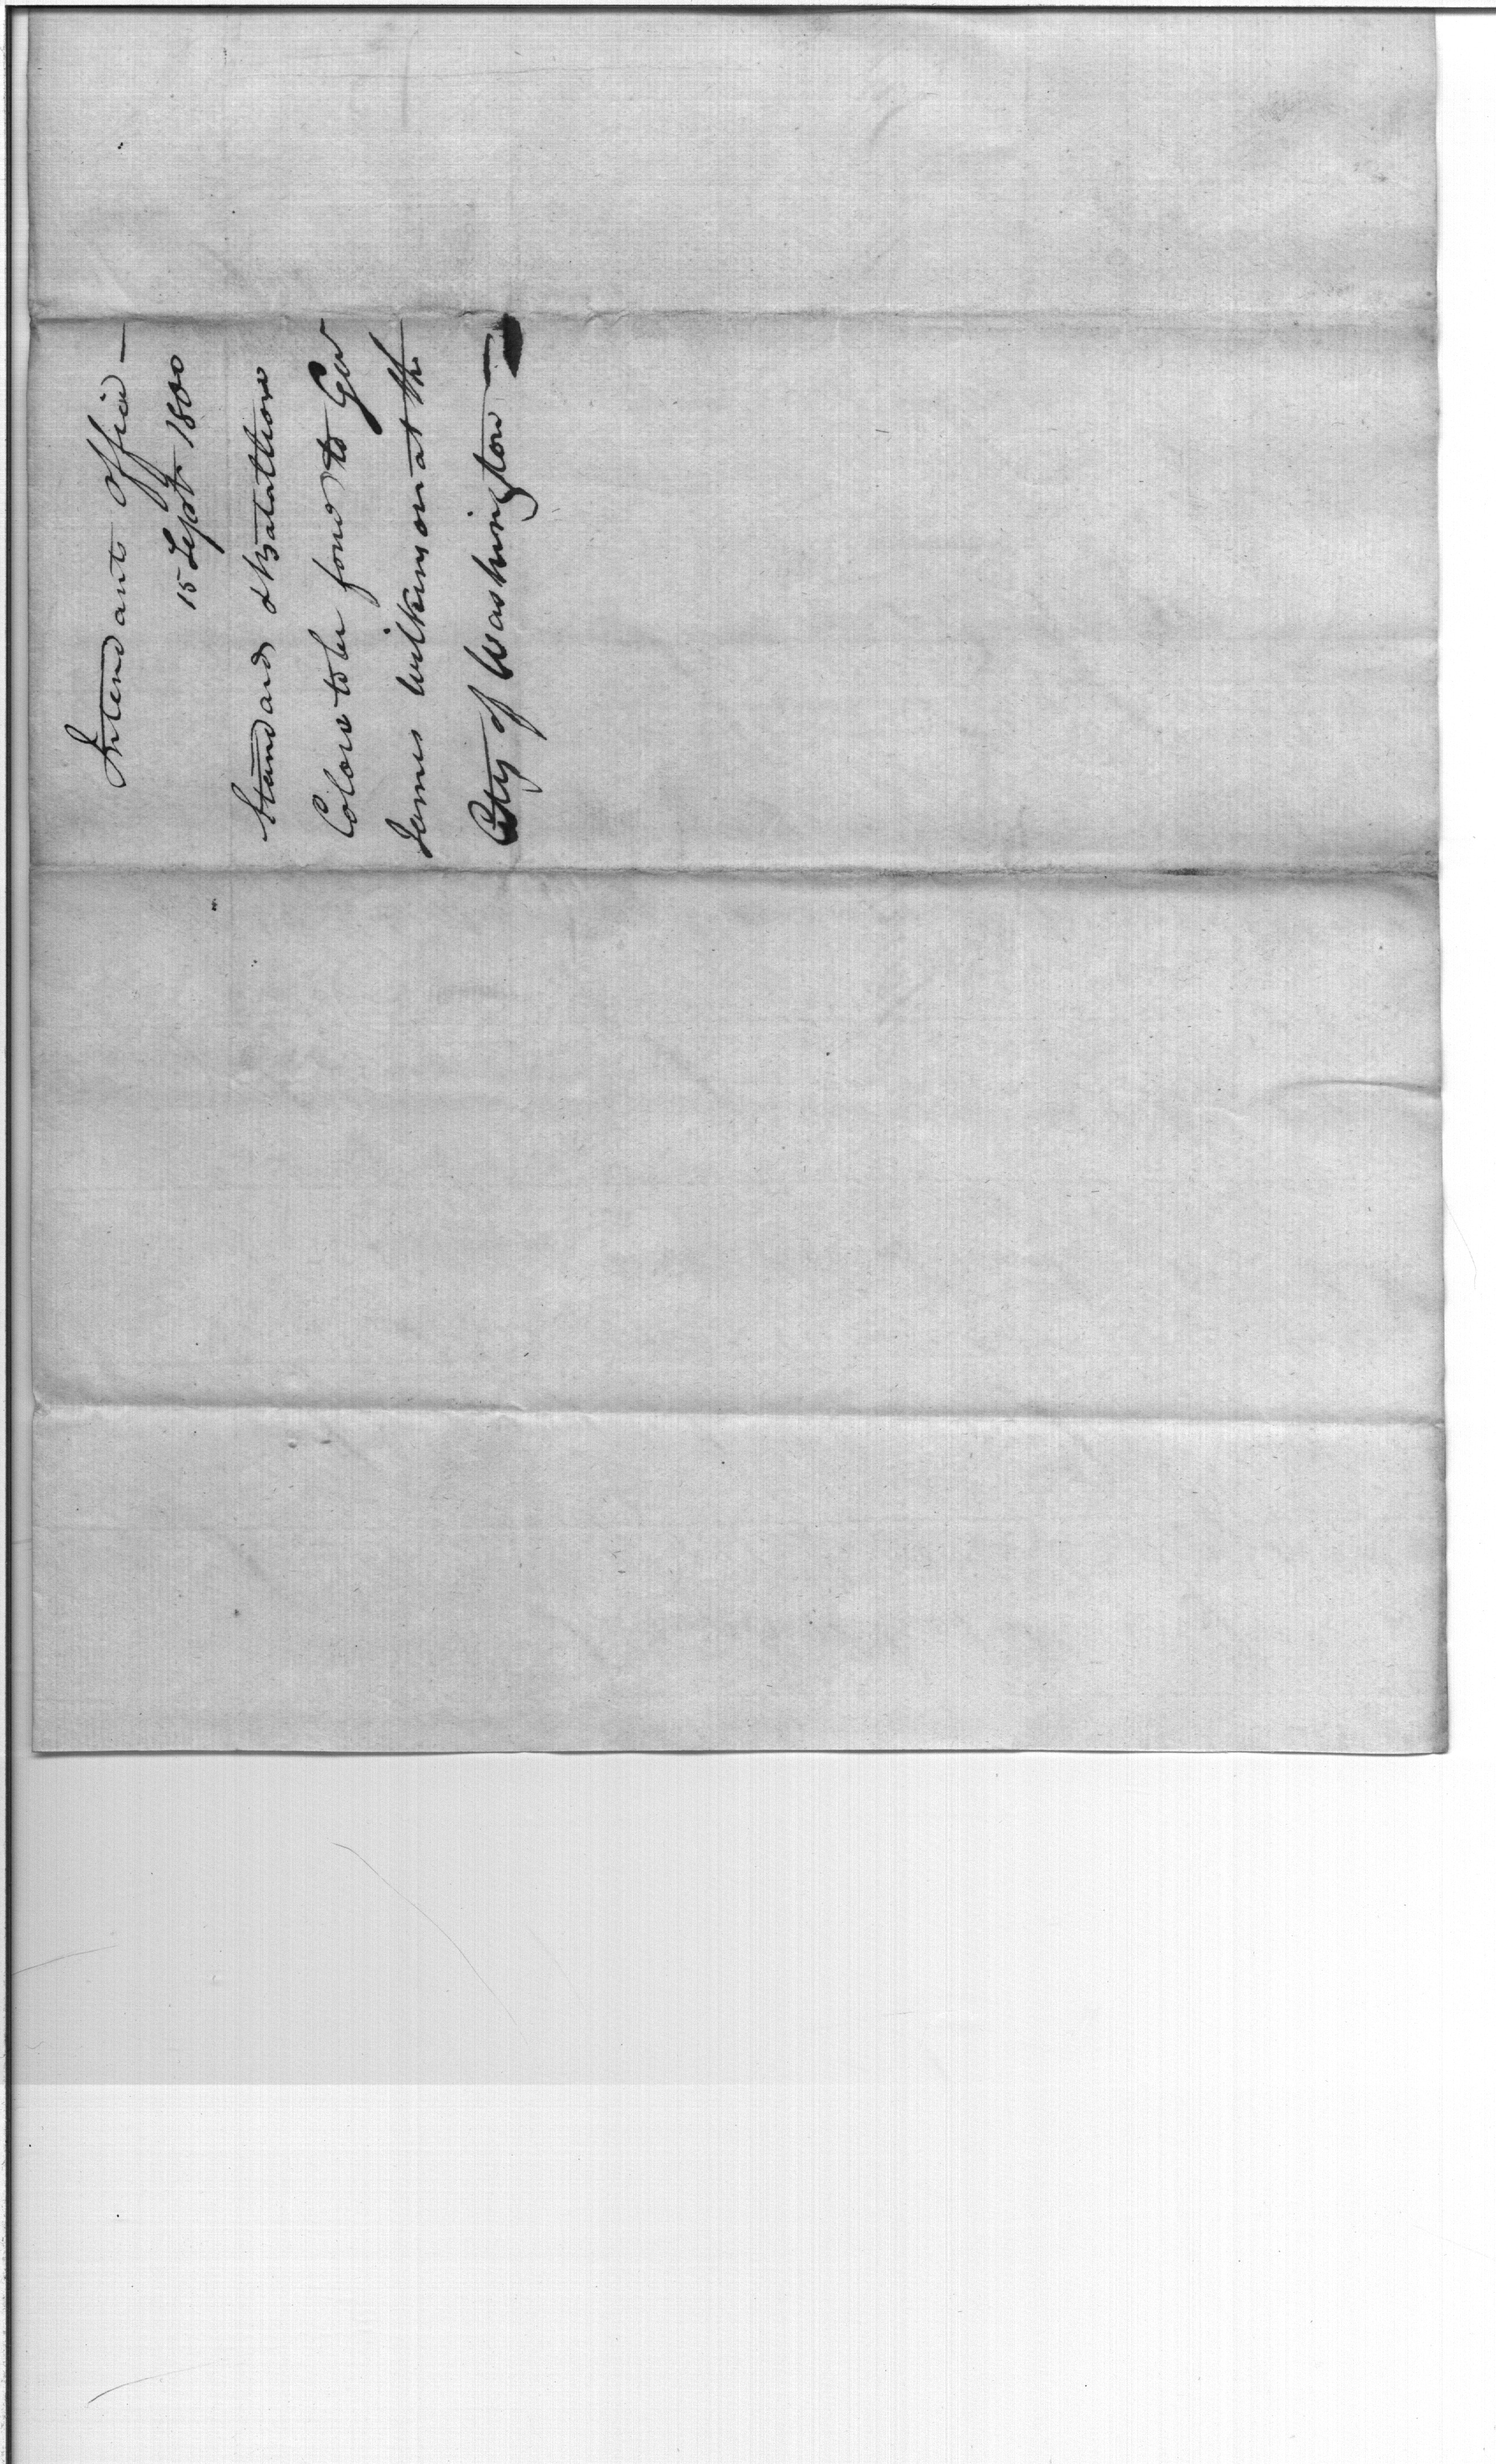 Intendants Office —
15 Sept. 1800
Standard & Batallion
Colors to be ford to Gen
James Wilkinson at the
City of Washington —